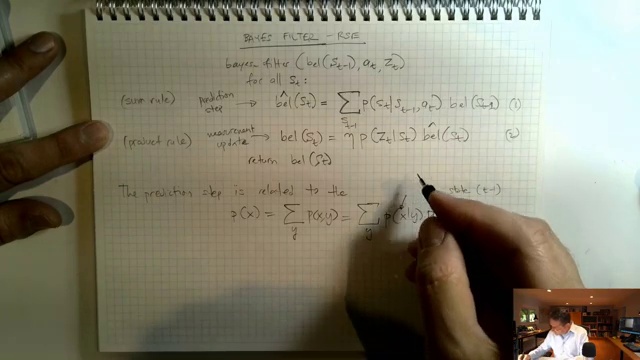 BAYES FILTER - RSE
bayes filter (bel(S_{t-1}), a_t, Z_t)
for all S_t:
(sum rule) prediction step → b̂el(S_t) = ∑_{S_{t-1}} p(S_t|S_{t-1}, a_t) bel(S_{t-1}) (1)
(product rule) measurement update → bel(S_t) = η p(Z_t|S_t) b̂el(S_t) (2)
return bel(S_t)
The prediction step is related to the state (t-1)
p(x) = ∑_y p(x,y) = ∑_y p(x|y) p